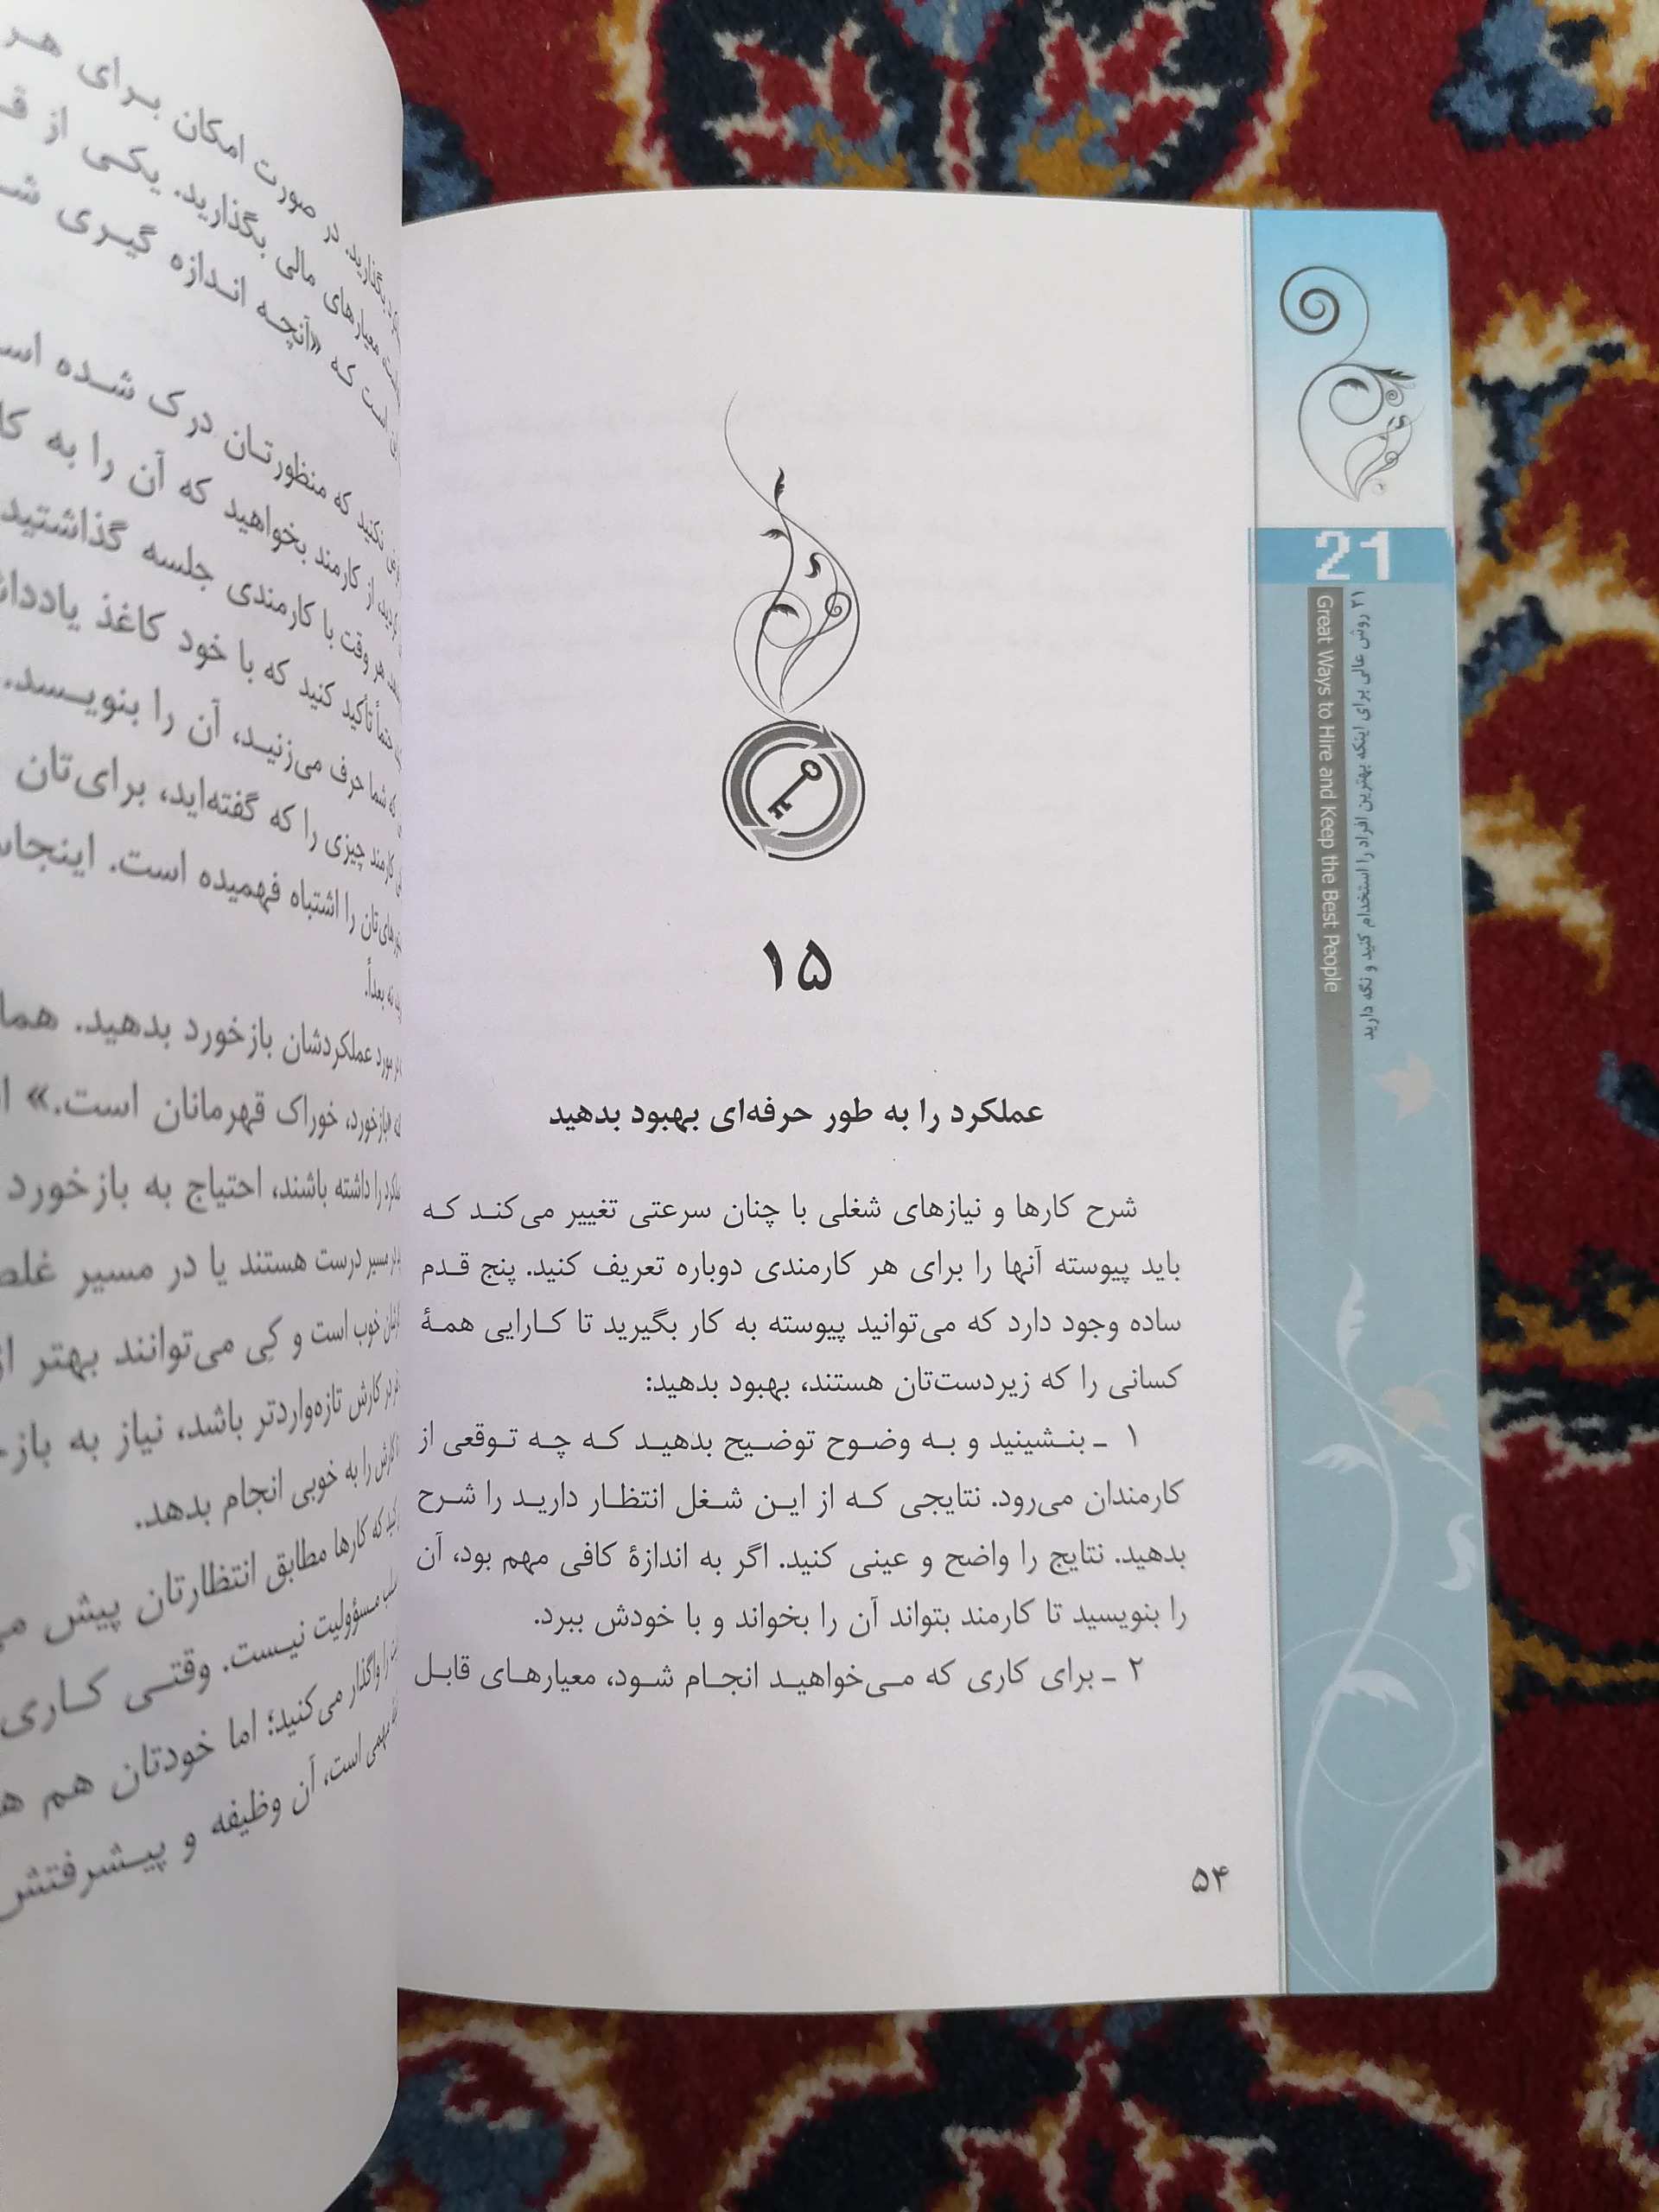 21
۲۱ روش عالی برای اینکه بهترین افراد را استخدام کنید و نگه دارید
Great Ways to Hire and Keep the Best People
۱۵
عملکرد را به طور حرفه‌ای بهبود بدهید
شرح کارها و نیازهای شغلی با چنان سرعتی تغییر می‌کند که
باید پیوسته آنها را برای هر کارمندی دوباره تعریف کنید. پنج قدم
ساده وجود دارد که می‌توانید پیوسته به کار بگیرید تا کارایی همهٔ
کسانی را که زیردست‌تان هستند، بهبود بدهید:
۱ ـ بنشینید و به وضوح توضیح بدهید که چه توقعی از
کارمندان می‌رود. نتایجی که از این شغل انتظار دارید را شرح
بدهید. نتایج را واضح و عینی کنید. اگر به اندازهٔ کافی مهم بود، آن
را بنویسید تا کارمند بتواند آن را بخواند و با خودش ببرد.
۲ ـ برای کاری که می‌خواهید انجام شود، معیارهای قابل
۵۴
بگذارید. در صورت امکان برای هر
معیارهای مالی بگذارید. یکی از
است که «آنچه اندازه گیری
نکنید که منظورتان درک شده
از کارمند بخواهید که آن را به
هر وقت با کارمندی جلسه گذاشتید
حتماً تأکید کنید که با خود کاغذ
که شما حرف می‌زنید، آن را بنویسد.
کارمند چیزی را که گفته‌اید، برای‌تان
را اشتباه فهمیده است.
نه بعداً.
در مورد عملکردشان بازخورد بدهید.
«بازخورد، خوراک قهرمانان است.»
را داشته باشند، احتیاج به بازخورد
مسیر درست هستند یا در مسیر
خوب است و کِی می‌توانند بهتر از
در کارش تازه‌واردتر باشد، نیاز به
کارش را به خوبی انجام بدهد.
که کارها مطابق انتظارتان پیش
مسؤولیت نیست. وقتی کاری
را واگذار می‌کنید؛ اما خودتان هم
مهمی است، آن وظیفه و پیشرفتش